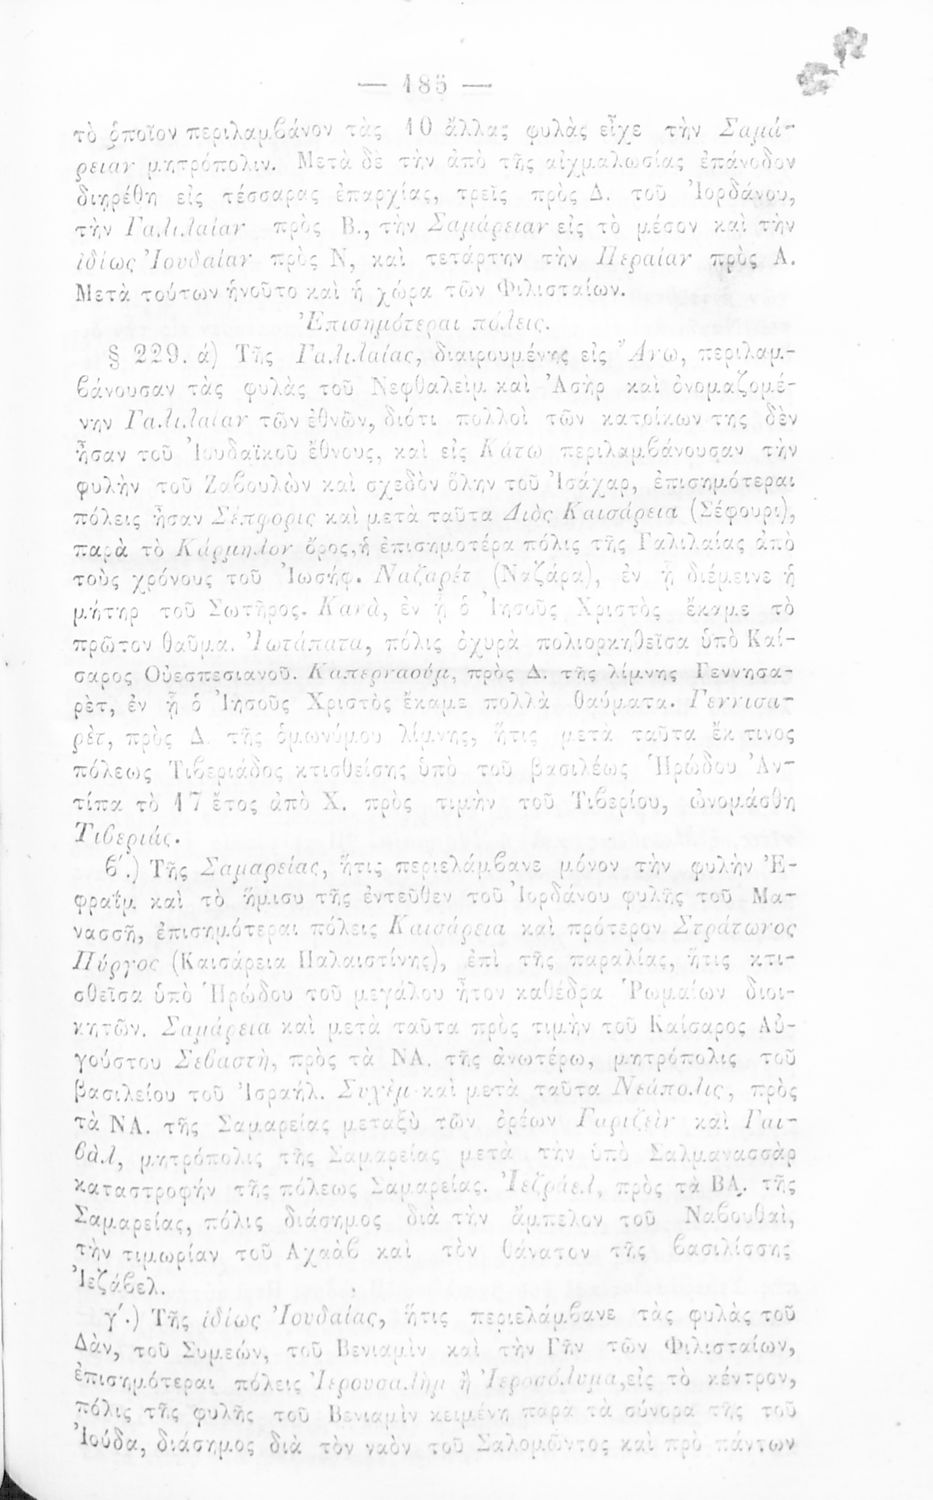 — 185 —
τὸ ὁποῖον περιλαμβάνον τὰς 10 ἄλλας φυλὰς εἶχε τὴν Σαμά-
ρειαν μητρόπολιν. Μετὰ δὲ τὴν ἀπὸ τῆς αἰχμαλωσίας ἐπάνοδον
διῃρέθη εἰς τέσσαρας ἐπαρχίας, τρεῖς πρὸς Δ. τοῦ Ἰορδάνου,
τὴν Γαλιλαίαν πρὸς Β., τὴν Σαμάρειαν εἰς τὸ μέσον καὶ τὴν
ἰδίως Ἰουδαίαν πρὸς Ν, καὶ τετάρτην τὴν Περαίαν πρὸς Α.
Μετὰ τούτων ἡνοῦτο καὶ ἡ χώρα τῶν Φιλισταίων.
Ἐπισημότεραι πόλεις.
§ 229. ά) Τῆς Γαλιλαίας, διαιρουμένης εἰς Ἄνω, περιλαμ-
βάνουσαν τὰς φυλὰς τοῦ Νεφθαλεὶμ καὶ Ἀσὴρ καὶ ὀνομαζομέ-
νην Γαλιλαίαν τῶν ἐθνῶν, διότι πολλοὶ τῶν κατοίκων της δὲν
ἦσαν τοῦ Ἰουδαϊκοῦ ἔθνους, καὶ εἰς Κάτω περιλαμβάνουσαν τὴν
φυλὴν τοῦ Ζαβουλὼν καὶ σχεδὸν ὅλην τοῦ Ἰσάχαρ, ἐπισημότεραι
πόλεις ἦσαν Σέπφορις καὶ μετὰ ταῦτα Διὸς Καισάρεια (Σέφουρι),
παρὰ τὸ Κάρμηλον ὄρος, ἡ ἐπισημοτέρα πόλις τῆς Γαλιλαίας ἀπὸ
τοὺς χρόνους τοῦ Ἰωσήφ. Ναζαρέτ (Ναζάρα), ἐν ᾗ διέμεινε ἡ
μήτηρ τοῦ Σωτῆρος. Κανὰ, ἐν ᾗ ὁ Ἰησοῦς Χριστὸς ἔκαμε τὸ
πρῶτον θαῦμα. Ἰωτάπατα, πόλις ὀχυρὰ πολιορκηθεῖσα ὑπὸ Καί-
σαρος Οὐεσπεσιανοῦ. Καπερναούμ, πρὸς Δ. τῆς λίμνης Γεννησα-
ρὲτ, ἐν ᾗ ὁ Ἰησοῦς Χριστὸς ἔκαμε πολλὰ θαύματα. Γεννισα-
ρὲτ, πρὸς Δ. τῆς ὁμωνύμου λίμνης, ἥτις μετὰ ταῦτα ἔκ τινος
πόλεως Τιβεριάδος κτισθείσης ὑπὸ τοῦ βασιλέως Ἡρώδου Ἀν-
τίπα τὸ 17 ἔτος ἀπὸ Χ. πρὸς τιμὴν τοῦ Τιβερίου, ὠνομάσθη
Τιβεριάς.
β΄.) Τῆς Σαμαρείας, ἥτις περιελάμβανε μόνον τὴν φυλὴν Ἐ-
φραΐμ καὶ τὸ ἥμισυ τῆς ἐντεῦθεν τοῦ Ἰορδάνου φυλῆς τοῦ Μα-
νασσῆ, ἐπισημότεραι πόλεις Καισάρεια καὶ πρότερον Στράτωνος
Πύργος (Καισάρεια Παλαιστίνης), ἐπὶ τῆς παραλίας, ἥτις κτι-
σθεῖσα ὑπὸ Ἡρώδου τοῦ μεγάλου ἦτον καθέδρα Ῥωμαίων διοι-
κητῶν. Σαμάρεια καὶ μετὰ ταῦτα πρὸς τιμὴν τοῦ Καίσαρος Αὐ-
γούστου Σεβαστὴ, πρὸς τὰ ΝΑ. τῆς ἀνωτέρω, μητρόπολις τοῦ
βασιλείου τοῦ Ἰσραήλ. Συχὲμ καὶ μετὰ ταῦτα Νεάπολις, πρὸς
τὰ ΝΑ. τῆς Σαμαρείας μεταξὺ τῶν ὀρέων Γαριζεὶν καὶ Γαι-
βὰλ, μητρόπολις τῆς Σαμαρείας μετὰ τὴν ὑπὸ Σαλμανασσὰρ
καταστροφήν τῆς πόλεως Σαμαρείας. Ἰεζράελ, πρὸς τὰ ΒΑ. τῆς
Σαμαρείας, πόλις διάσημος διὰ τὴν ἄμπελον τοῦ Ναβουθαὶ,
τὴν τιμωρίαν τοῦ Αχαὰβ καὶ τὸν θάνατον τῆς βασιλίσσης
Ἰεζάβελ.
γ΄.) Τῆς ἰδίως Ἰουδαίας, ἥτις περιελάμβανε τὰς φυλὰς τοῦ
Δὰν, τοῦ Συμεών, τοῦ Βενιαμὶν καὶ τὴν Γῆν τῶν Φιλισταίων,
ἐπισημότεραι πόλεις Ἱερουσαλὴμ ἢ Ἱεροσόλυμα, εἰς τὸ κέντρον,
πόλις τῆς φυλῆς τοῦ Βενιαμὶν κειμένη παρὰ τὰ σύνορα τῆς τοῦ
Ἰούδα, διάσημος διὰ τὸν ναὸν τοῦ Σαλομῶντος καὶ πρὸ πάντων